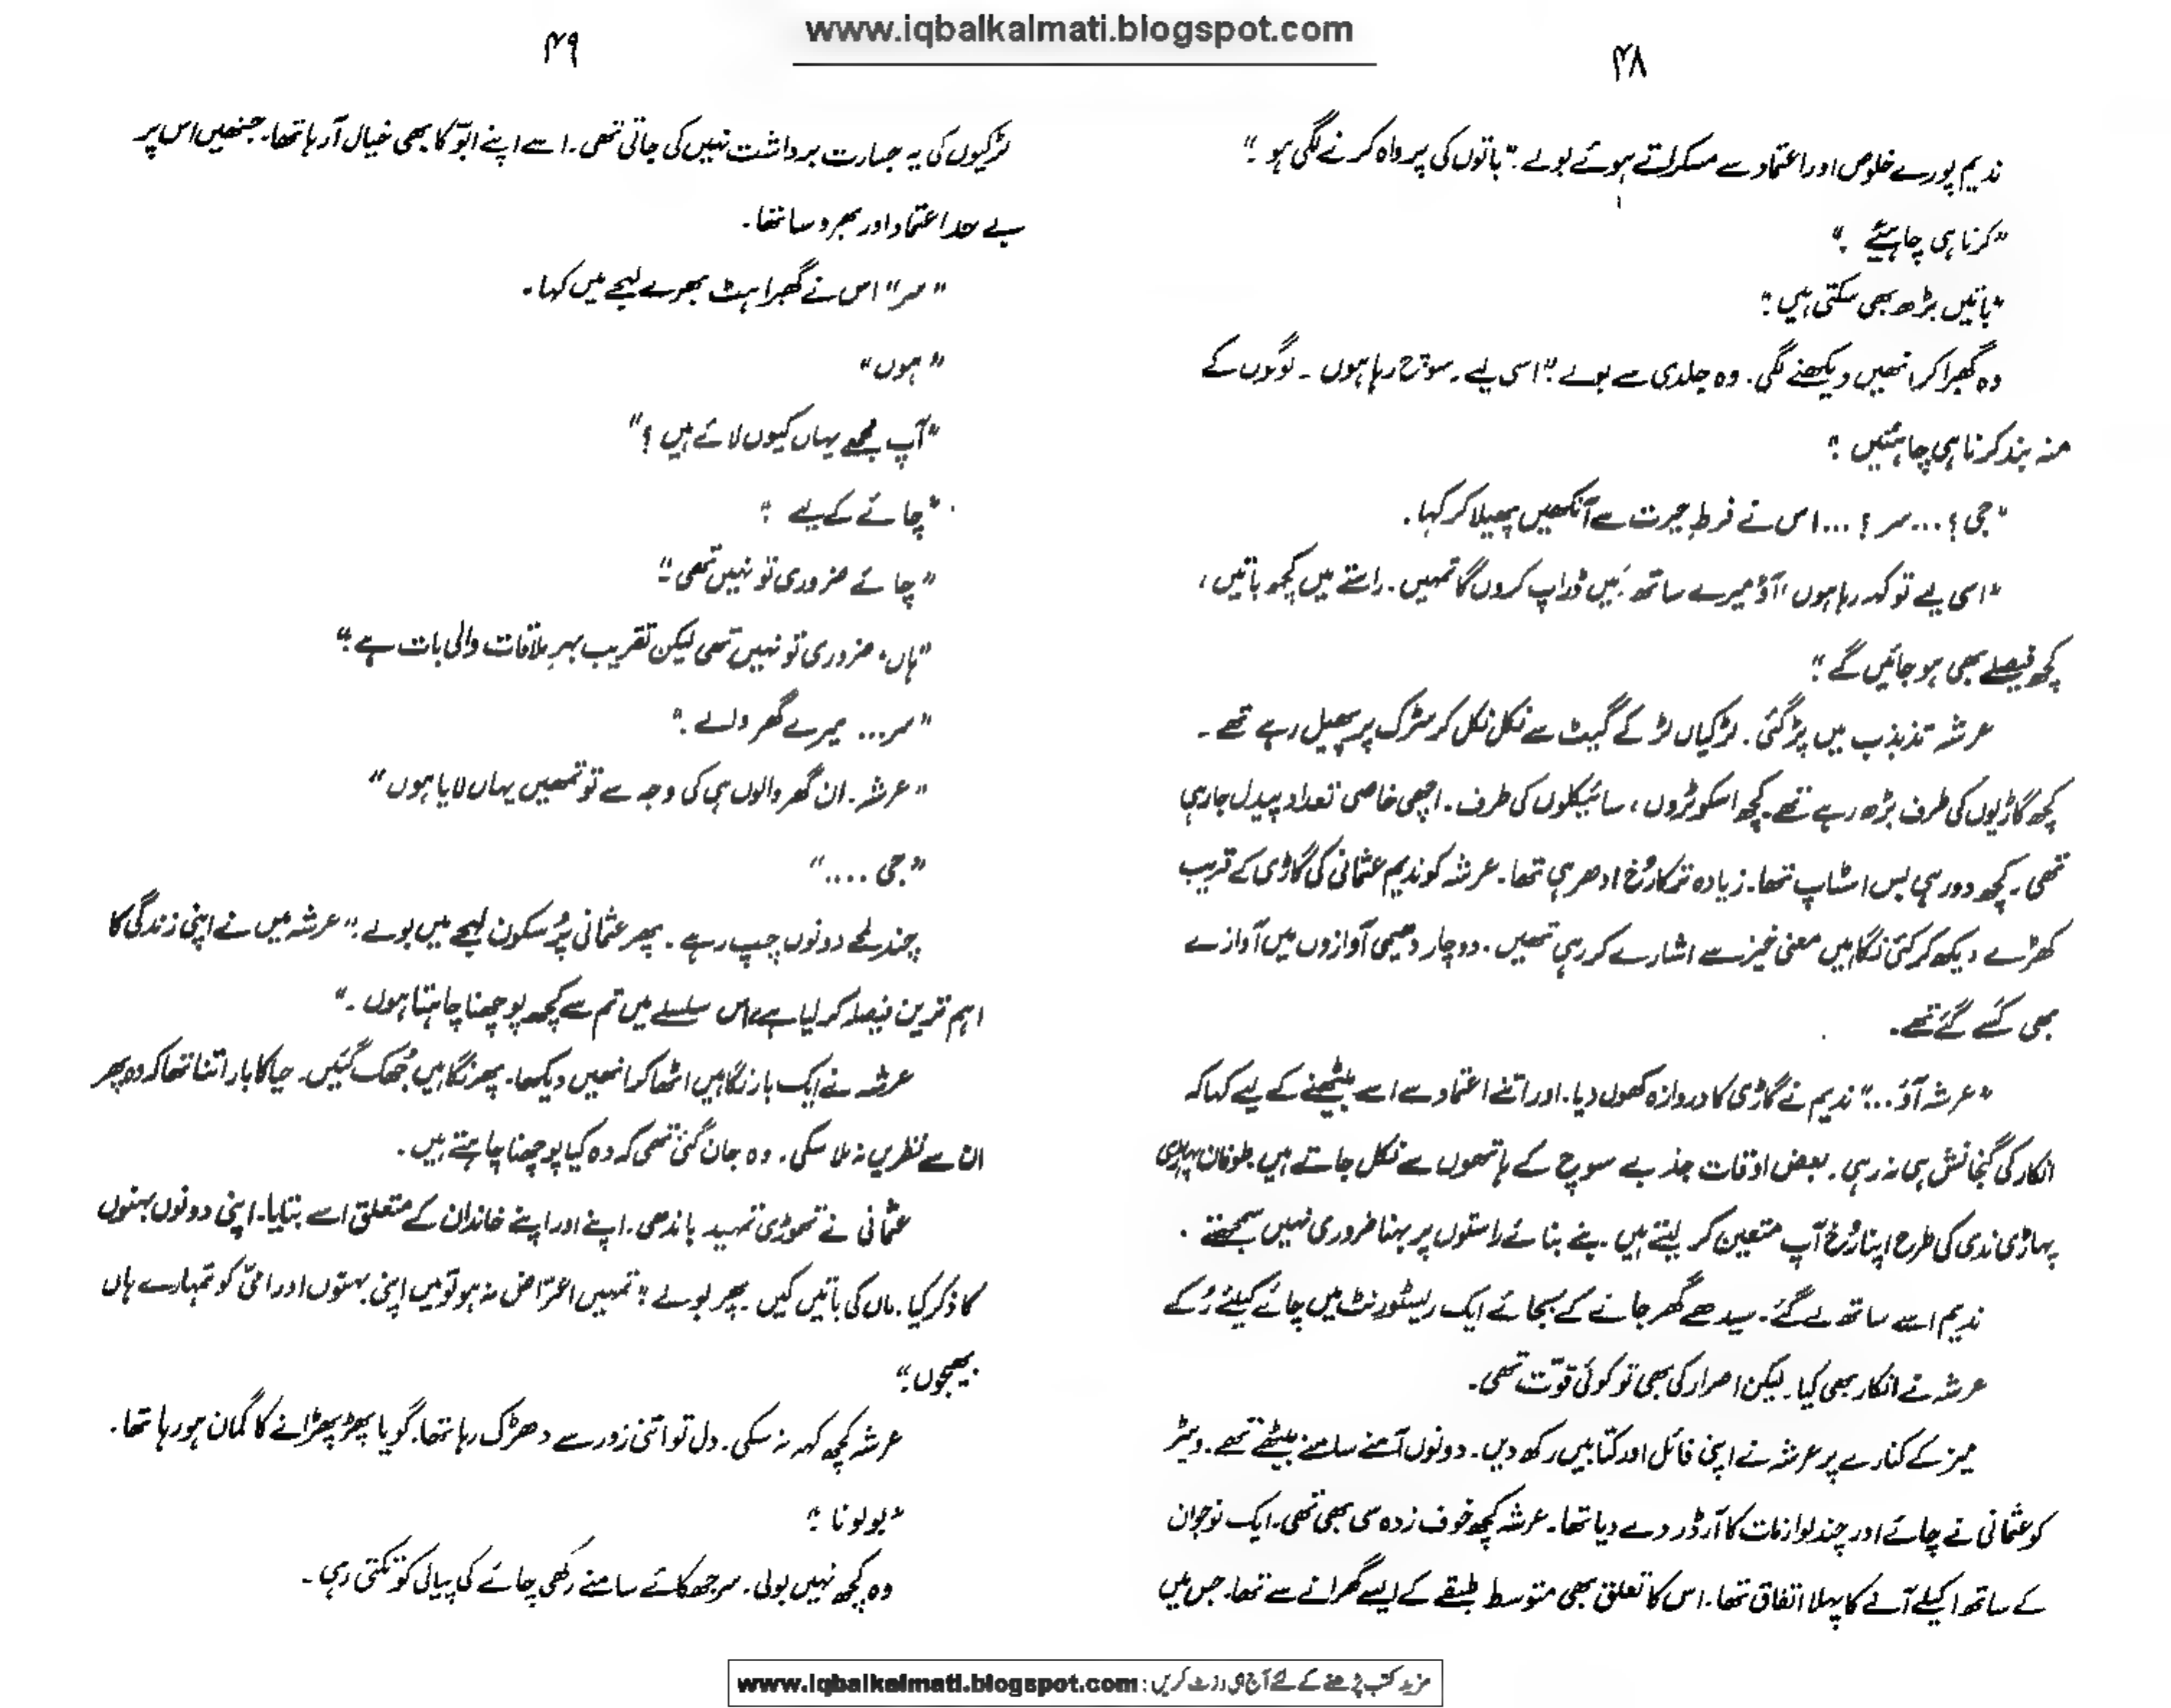 www.iqbalkalmati.blogspot.com
۴۸
ندیم پورے خلوص اور اعتماد سے مسکراتے ہوئے بولے۔ "باتوں کی پرواہ کرنے لگی ہو۔"
"کرنا ہی چاہیئے۔"
"باتیں بڑھ بھی سکتی ہیں۔"
وہ گھبرا کر انھیں دیکھنے لگی۔ وہ جلدی سے بولے۔ "اسی لیے۔ سوچ رہا ہوں۔ لوگوں کے
منہ بند کرنا ہی چاہئیں۔"
"جی؟... سر؟... اس نے فرطِ حیرت سے آنکھیں پھیلا کر کہا۔
"اسی لیے تو کہہ رہا ہوں، آؤ میرے ساتھ۔ میں ڈراپ کروں گا تمہیں۔ راستے میں کچھ باتیں،
کچھ فیصلے بھی ہو جائیں گے۔"
عرشہ تذبذب میں پڑ گئی۔ لڑکیاں لڑکے گیٹ سے نکل نکل کر سڑک پر پھیل رہے تھے۔
کچھ گاڑیوں کی طرف بڑھ رہے تھے۔ کچھ اسکوٹروں، سائیکلوں کی طرف۔ اچھی خاصی تعداد پیدل جا رہی
تھی۔ کچھ دور ہی بس اسٹاپ تھا۔ زیادہ تر کا رُخ ادھر ہی تھا۔ عرشہ کو ندیم عثمانی کی گاڑی کے قریب
کھڑے دیکھ کر کئی نگاہیں معنی خیز سے اشارے کر رہی تھیں۔ دو چار دھیمی آوازوں میں آوازے
بھی کسے گئے تھے۔
"عرشہ آؤ..." ندیم نے گاڑی کا دروازہ کھول دیا۔ اور اتنے اعتماد سے اسے بیٹھنے کے لیے کہا کہ
انکار کی گنجائش ہی نہ رہی۔ بعض اوقات جذبے سوچ کے ہاتھوں سے نکل جاتے ہیں۔ طوفان
پہاڑی ندی کی طرح اپنا رُخ آپ متعین کر لیتے ہیں۔ بنے بنائے راستوں پر بہنا ضروری نہیں سمجھتے۔
ندیم اسے ساتھ لے گئے۔ سیدھے گھر جانے کے بجائے ایک ریسٹورنٹ میں چائے کیلئے رُکے
عرشہ نے انکار بھی کیا۔ لیکن اصرار کی بھی تو کوئی قوّت تھی۔
میز کے کنارے پر عرشہ نے اپنی فائل اور کتابیں رکھ دیں۔ دونوں آمنے سامنے بیٹھے تھے۔ ویٹر
کو عثمانی نے چائے اور چند لوازمات کا آرڈر دے دیا تھا۔ عرشہ کچھ خوف زدہ سی بھی تھی۔ ایک نوجوان
کے ساتھ اکیلے آنے کا پہلا اتفاق تھا۔ اس کا تعلق بھی متوسط طبقے کے ایسے گھرانے سے تھا۔ جس میں
۴۹
لڑکیوں کی یہ جسارت برداشت نہیں کی جاتی تھی۔ اسے اپنے ابّو کا بھی خیال آ رہا تھا۔ جنھیں اس پر
بے حد اعتماد اور بھروسا تھا۔
"سر" اس نے گھبراہٹ بھرے لہجے میں کہا۔
"ہوں"
"آپ مجھے یہاں کیوں لائے ہیں؟"
"چائے کے لیے۔"
"چائے ضروری تو نہیں تھی۔"
"ہاں، ضروری تو نہیں تھی لیکن تقریب بہرِ ملاقات والی بات ہے۔"
"سر... میرے گھر والے۔"
"عرشہ۔ ان گھر والوں ہی کی وجہ سے تو تمھیں یہاں لایا ہوں"
"جی ...."
چند لمحے دونوں چپ رہے۔ پھر عثمانی پُرسکون لہجے میں بولے۔ "عرشہ میں نے اپنی زندگی کا
اہم ترین فیصلہ کر لیا ہے، اس سلسلے میں تم سے کچھ پوچھنا چاہتا ہوں۔"
عرشہ نے ایک بار نگاہیں اٹھا کر انھیں دیکھا۔ پھر نگاہیں جُھک گئیں۔ حیا کا بار اتنا تھا کہ وہ پھر
ان سے نظریں نہ ملا سکی۔ وہ جان گئی تھی کہ وہ کیا پوچھنا چاہتے ہیں۔
عثمانی نے تھوڑی تمہید باندھی۔ اپنے اور اپنے خاندان کے متعلق اسے بتایا۔ اپنی دونوں بہنوں
کا ذکر کیا۔ ماں کی باتیں کیں۔ پھر بولے "تمہیں اعتراض نہ ہو تو میں اپنی بہنوں اور امّی کو تمہارے ہاں
بھیجوں۔"
عرشہ کچھ کہہ نہ سکی۔ دل تو اتنی زور سے دھڑک رہا تھا۔ گویا پھڑپھڑانے کا گمان ہو رہا تھا۔
"بولو نا۔"
وہ کچھ نہیں بولی۔ سر جھکائے سامنے رکھی چائے کی پیالی کو تکتی رہی۔
مزید کتب پڑھنے کے لئے آج ہی وزٹ کریں: www.iqbalkalmati.blogspot.com